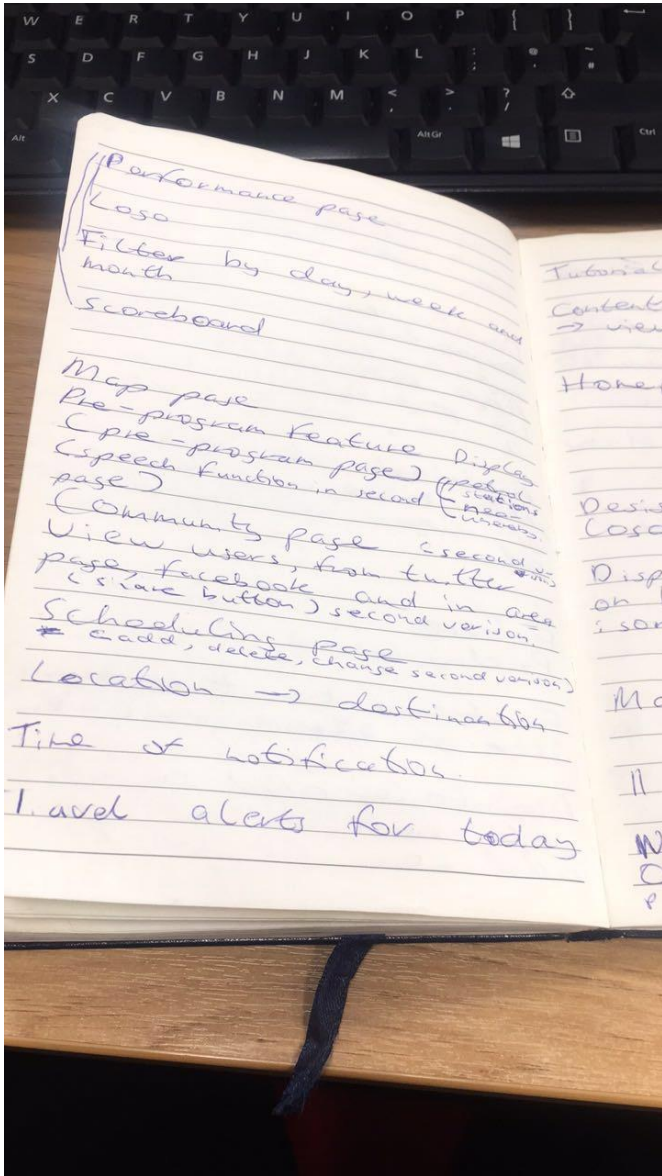 W E R T Y U I O P { }
S D F G H J K L : ;
X C V B N M < , > . ? /
Alt Alt Gr Ctrl
Performance page
Logo
Filter by day, week and
month
Scoreboard
Map page
Pre-program feature Display
(pre-program page) (petrol
stations
(speech function in second
page)
Community page (second
View users, from twitter
page, facebook and in area
(share button) second verison.
Scheduling page
(add, delete, change second verison)
Location → destinantion
Time of notification.
Travel alerts for today
Tutorial
Content
→ view
Home
Logo
Disp
on